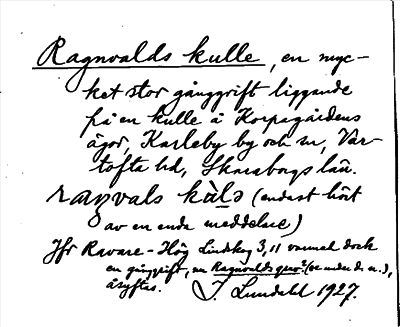 Ragnvalds kulle, en myc-
ket stor gånggrift liggande
på en kulle å Korpagårdens
ägor, Karleby by och sn, Var-
tofta hd, Skaraborgs län.
ragvals kùlə (endast hört
av en enda meddelare)
Jfr Ravare-Hög Lindskog 3, 11 varmed dock
en gånggrift, en Ragnvalds grav? (se under d. n.),
åsyftas. J. Lundahl 1927.